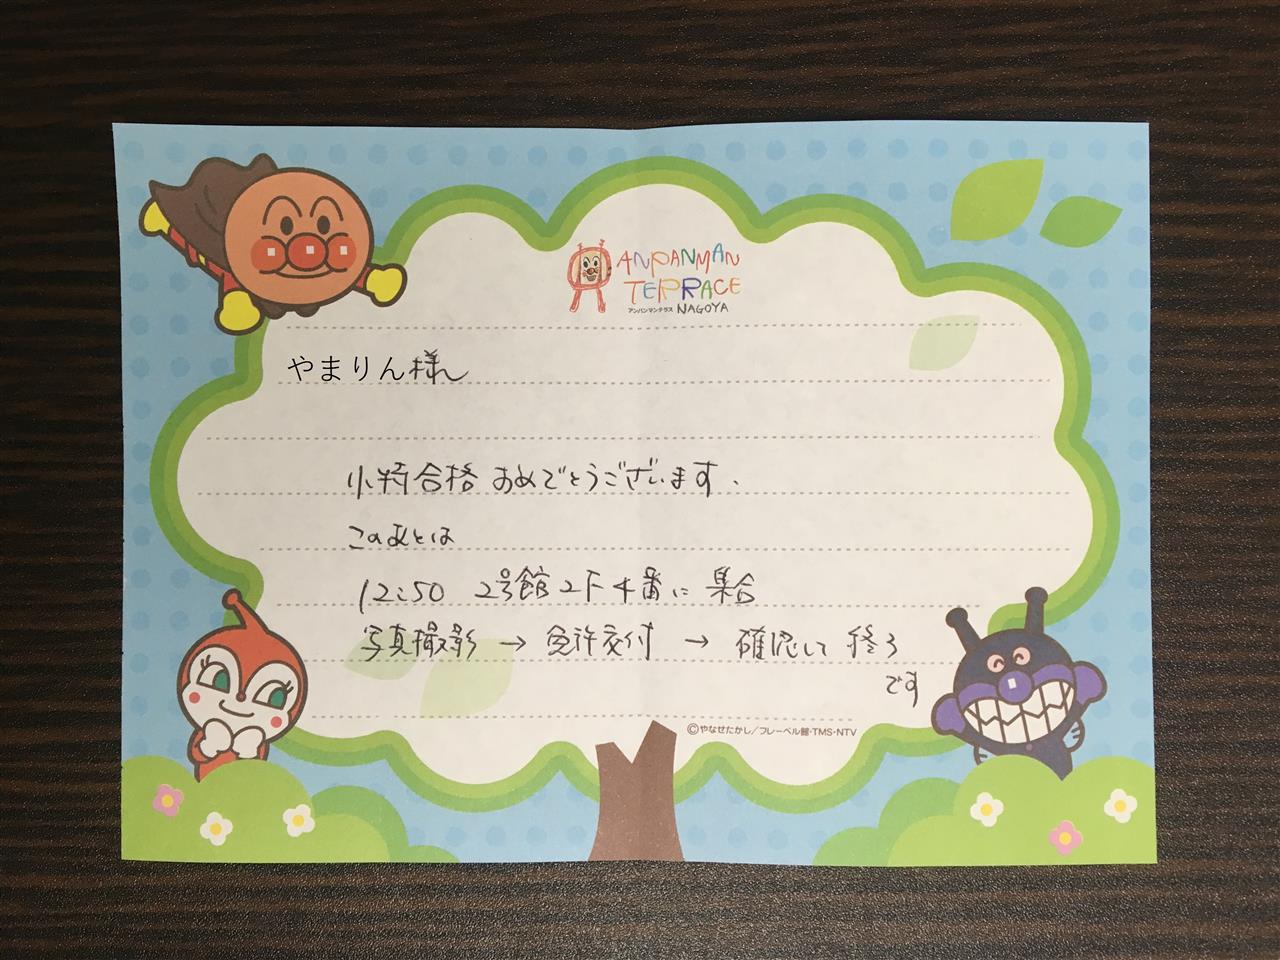 ANPANMAN
TERRACE
アンパンマンテラス NAGOYA
やまりん様
小特合格 おめでとうございます.
このあとは
12:50 2号館2F4番に 集合
写真撮影 → 免許交付 → 確認して 終了
です
©やなせたかし/フレーベル館・TMS・NTV